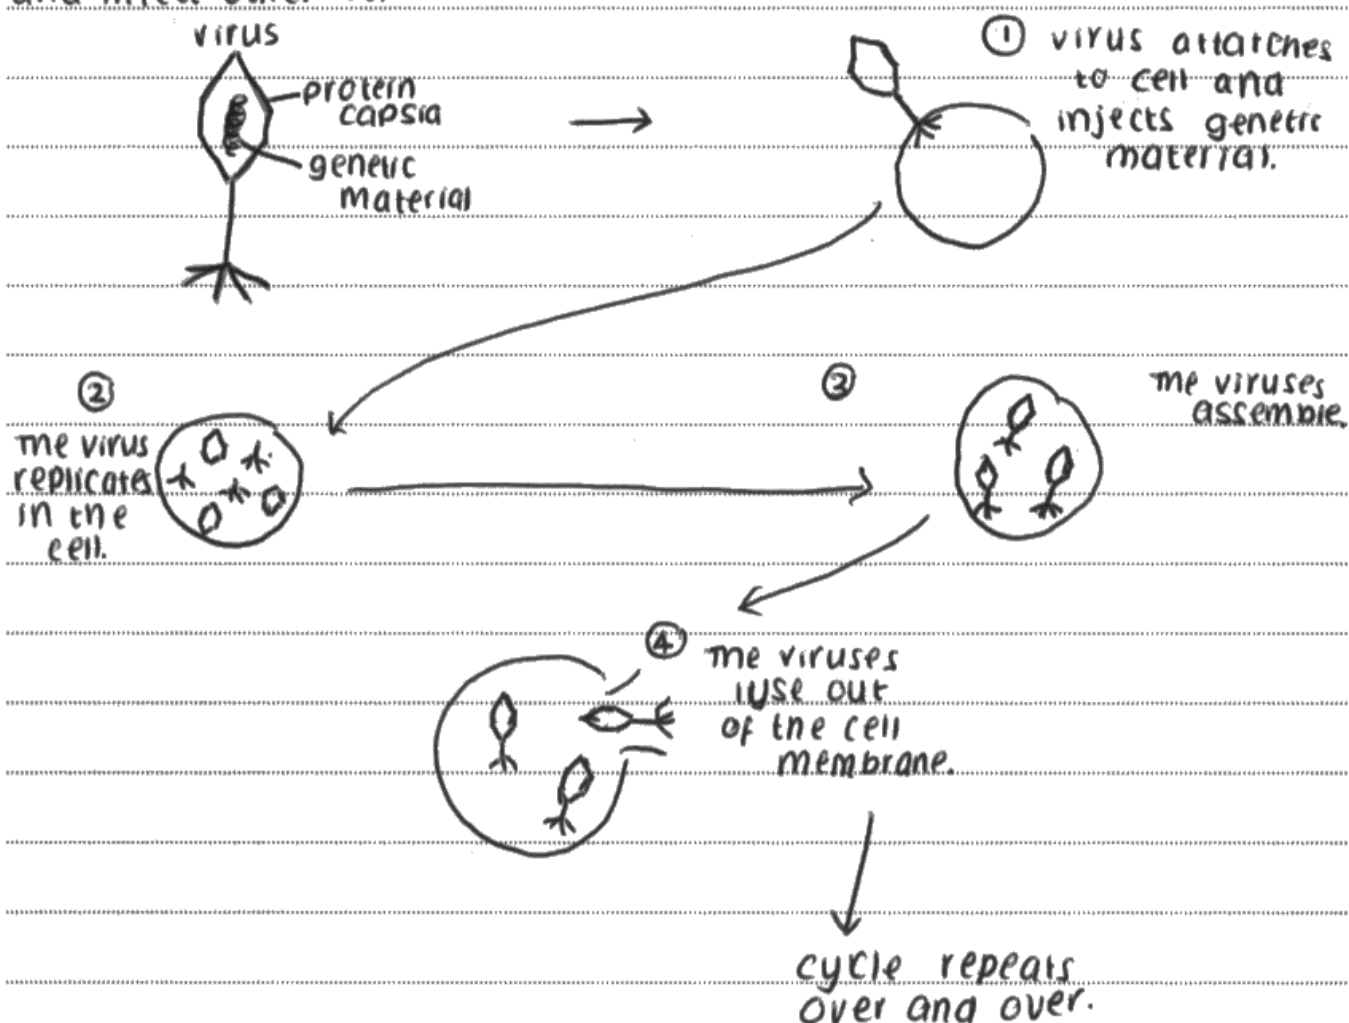 virus
protein
capsid
genetic
material
① virus attatches
to cell and
injects genetic
material.
②
The virus
replicates
in the
cell.
③
The viruses
assemble.
④ The viruses
lyse out
of the cell
membrane.
cycle repeats
over and over.